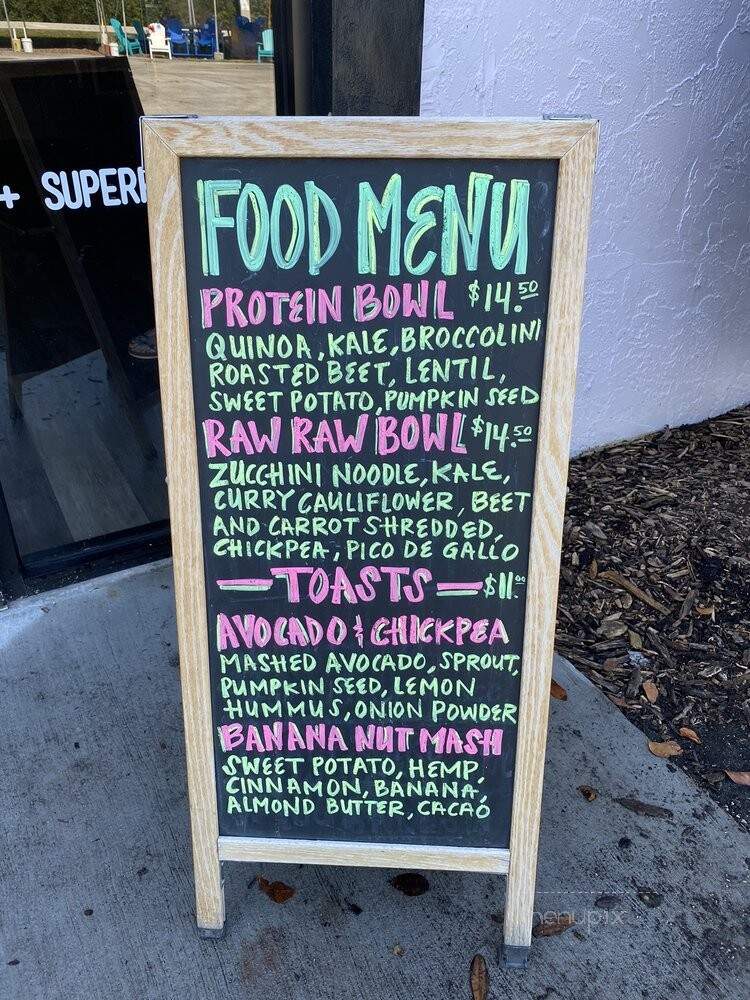 + SUPERF
FOOD MENU
PROTEIN BOWL $14.50
QUINOA, KALE, BROCCOLINI
ROASTED BEET, LENTIL,
SWEET POTATO, PUMPKIN SEED
RAW RAW BOWL $14.50
ZUCCHINI NOODLE, KALE,
CURRY CAULIFLOWER, BEET
AND CARROT SHREDDED,
CHICKPEA, PICO DE GALLO
— TOASTS — $11.00
AVOCADO & CHICKPEA
MASHED AVOCADO, SPROUT,
PUMPKIN SEED, LEMON
HUMMUS, ONION POWDER
BANANA NUT MASH
SWEET POTATO, HEMP,
CINNAMON, BANANA,
ALMOND BUTTER, CACAO
menupix